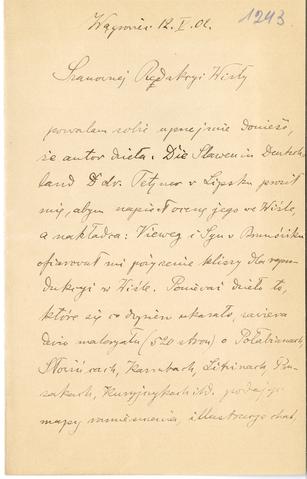 1243
Wągrowiec 12.V.02.
Szanownej Redakcyi Wisły
pozwalam sobie uprzejmie donieść,
że autor dzieła: Die Slawen in Deutsch-
land Dr. Tetzner w Lipsku prosił
mię, abym napisał ocenę jego w Wiśle,
a nakładca: Vieweg i Syn w Brunświku
ofiarował mi pożyczenie kliszy dla repro-
dukcyi w Wiśle. Ponieważ dzieło to,
które się co ukazało, zawiera
materyału (520 stron) o Połabianach,
Słowińcach, Kaszubach, Litwinach, Pru-
sakach, itd. podając
mapy, illustracye chat,